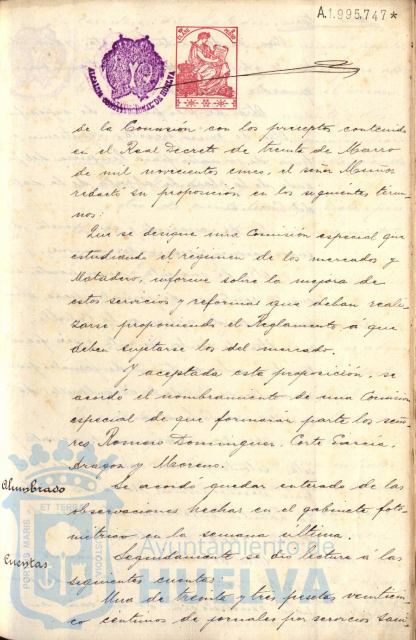 A.1.995.747*
ALCALDIA CONSTITUCIONAL DE HUELVA
de la Comisión con los preceptos contenidos
en el Real Decreto de treinta de Marzo
de mil novecientos cinco, el señor Muñoz
redactó su proposición en los siguientes térmi-
nos:
Que se designe una Comisión especial que
estudiando el régimen de los mercados y
Matadero, informe sobre la mejora de
estos servicios y reformas que deban reali-
zarse proponiendo el Reglamento á que
deben sujetarse los del mercado.
Y aceptada esta proposición, se
acordó el nombramiento de una Comisión
especial de que formarán parte los seño-
res Romero Dominguez, Corte García,
Aragon y Moreno.
Alumbrado
Se acordó quedar enterado de las
observaciones hechas en el gabinete foto-
métrico en la semana última.
Cuentas
Seguidamente se dio lectura á las
siguientes cuentas:
Una de treinta y tres pesetas veinticin-
co centimos de jornales por servicios sani-
PORTUS MARIS ET TERRAE CUSTODIA
Ayuntamiento de
HUELVA